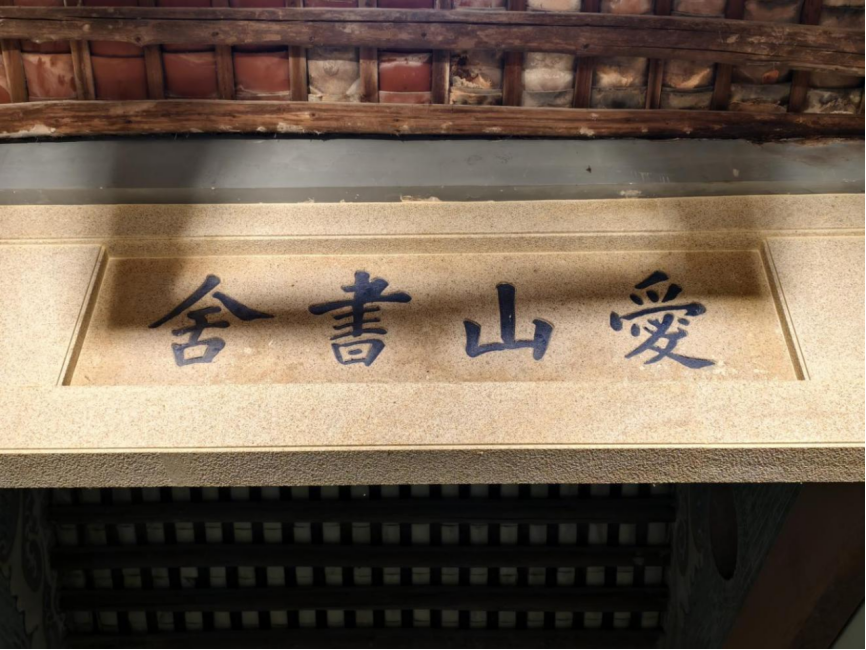 愛山書舍